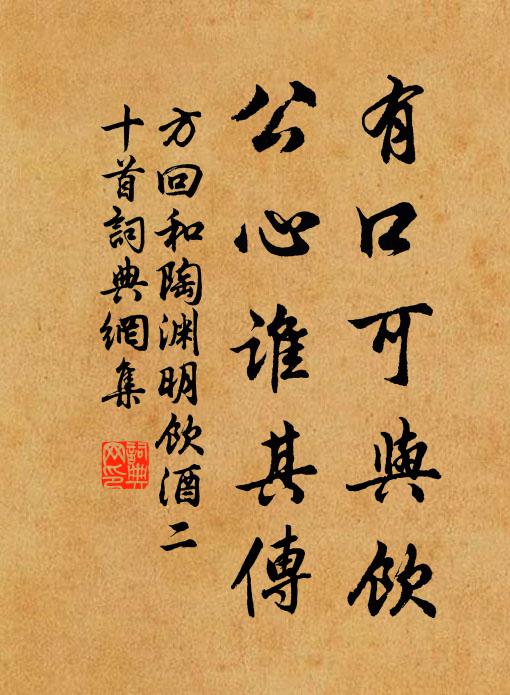 有口可與飲
公心誰其傳
方回和陶渊明飲酒二
十首詞典網集
詞典网印